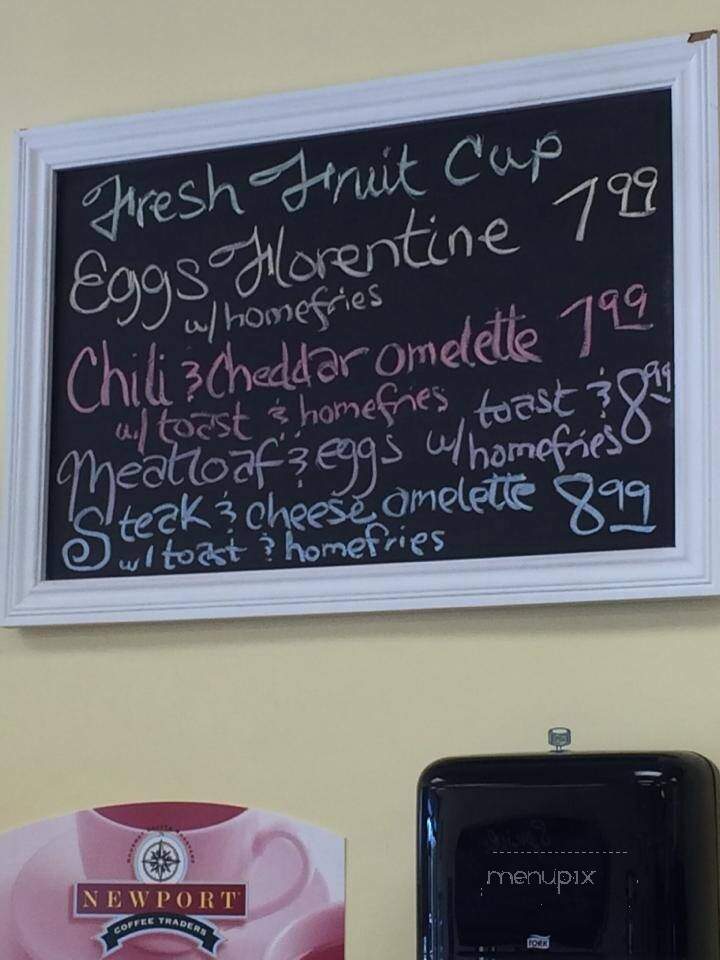 Fresh Fruit Cup
Eggs Florentine 7 99
w/ homefries
Chili & Cheddar omelette 7 99
w/ toast & homefries
Meatloaf & eggs w/ toast & homefries 8 99
Steak & cheese omelette 8 99
w/ toast & homefries
NEWPORT
COFFEE TRADERS
menupix
TORK